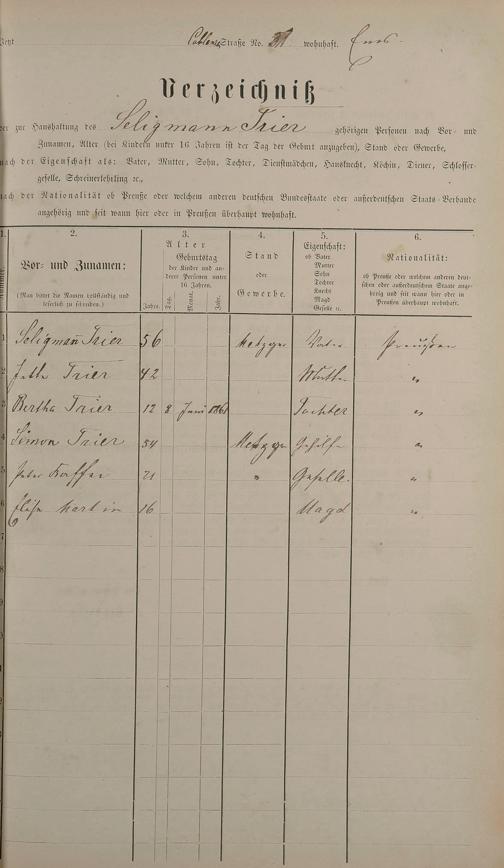 Coblenz Straße No. 31 wohnhaft. Ems
Verzeichniß
der zur Haushaltung des Seligmann Trier gehörigen Personen nach Vor- und
Zunamen, Alter (bei Kindern unter 16 Jahren ist der Tag der Geburt anzugeben), Stand oder Gewerbe,
nach der Eigenschaft als: Vater, Mutter, Sohn, Tochter, Dienstmädchen, Hausknecht, Köchin, Diener, Schlosser-
geselle, Schreinerlehrling ꝛc.,
nach der Nationalität ob Preuße oder welchem anderen deutschen Bundesstaate oder außerdeutschen Staats-Verbande
angehörig und seit wann hier oder in Preußen überhaupt wohnhaft.
1. 2. 3. 4. 5. 6.
Vor- und Zunamen:
(Man bittet die Namen vollständig und
leserlich zu schreiben.)
Alter
Geburtstag
der Kinder und an-
derer Personen unter
16 Jahren.
Jahre. Tag. Monat. Jahr.
Stand
oder
Gewerbe.
Eigenschaft:
ob Vater
Mutter
Sohn
Tochter
Knecht
Magd
Geselle ꝛc.
Nationalität:
ob Preuße oder welchem anderen deut-
schen oder außerdeutschen Staate ange-
hörig und seit wann hier oder in
Preußen überhaupt wohnhaft.
1 Seligmañ Trier 56 Metzger Vater Preußen
2 Trier 42 Mutter "
3 Bertha Trier 12 8 Juni 1861 Tochter "
4 Simon Trier 54 Metzger Gehilfe "
5 Peter 21 " Geselle "
6 Elise Martin 16 Magd "
7
8
9